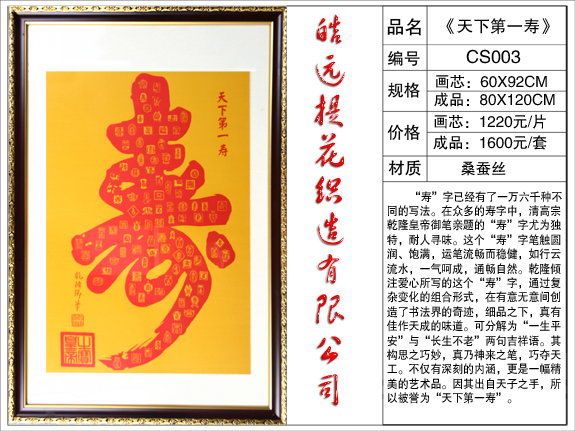 天下第一寿
乾隆御笔
皓远提花织造有限公司
品名 《天下第一寿》
编号 CS003
规格 画芯：60X92CM
成品：80X120CM
价格 画芯：1220元/片
成品：1600元/套
材质 桑蚕丝
“寿”字已经有了一万六千种不
同的写法。在众多的寿字中，清高宗
乾隆皇帝御笔亲题的“寿”字尤为独
特，耐人寻味。这个“寿”字笔触圆
润、饱满，运笔流畅而稳健，如行云
流水，一气呵成，通畅自然。乾隆倾
注爱心所写的这个“寿”字，通过复
杂变化的组合形式，在有意无意间创
造了书法界的奇迹，细品之下，真有
佳作天成的味道。可分解为“一生平
安”与“长生不老”两句吉祥语。其
构思之巧妙，真乃神来之笔，巧夺天
工。不仅有深刻的内涵，更是一幅精
美的艺术品。因其出自天子之手，所
以被誉为“天下第一寿”。